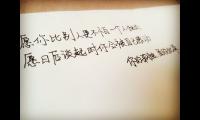 愿你比别人更不怕一个人独处
愿日后谈起时你会被自己感动